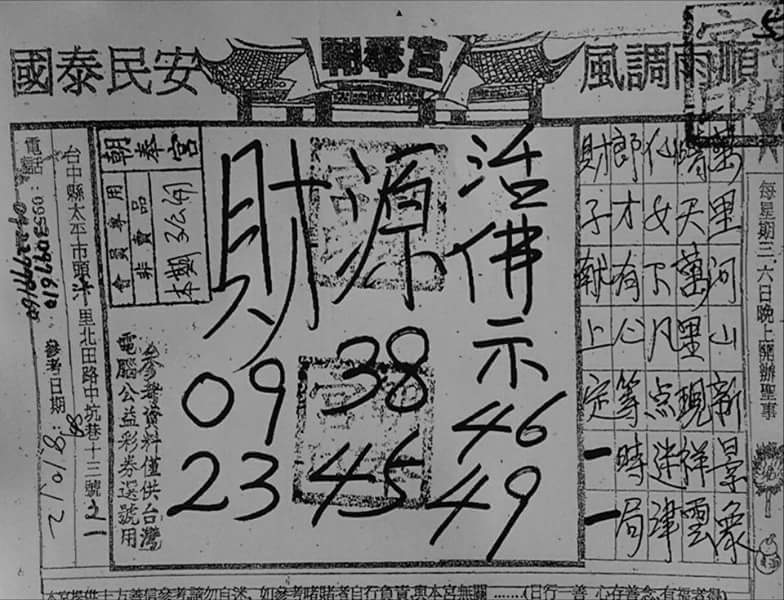 順雨調風
朝奉宮
安民泰國
每星期三.六日晚上開辦聖事
萬里河山新景象
晴天萬里現祥雲
仙女下凡点迷津
郎才有心等時局
財子献上定一一
活佛示
源
財
38
09
46
45
23
49
朝奉宮
會員專用
非賣品
本期
參考資料僅供台灣
電腦公益彩券選號用
台中縣太平市頭汴里北田路中坑巷十三號之一
電話:0953097610
參考日期:
本宮提供十方善信參考請勿自迷,如參考賭賭者自行負責,與本宮無關……(日行一善 心存善念,有福者得)